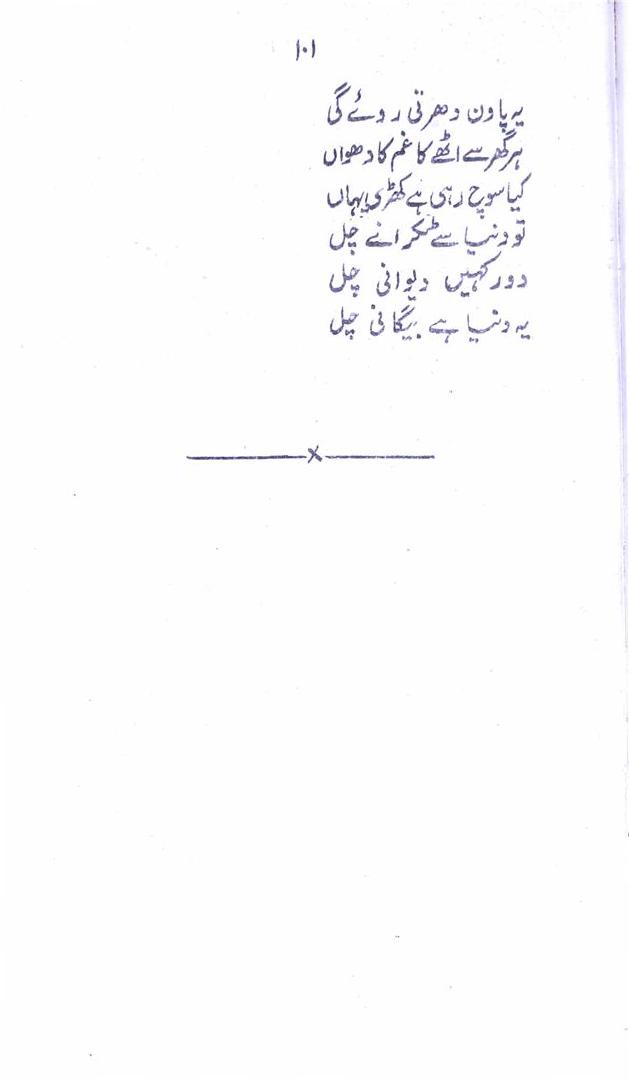 ۱۰۱
یہ پاون دھرتی روئے گی
ہر گھر سے اٹھے کا غم کا دھواں
کیا سوچ رہی ہے کھڑی یہاں
تو دنیا سے ٹکرانے چل
دور کہیں دیوانی چل
یہ دنیا ہے بیگانی چل